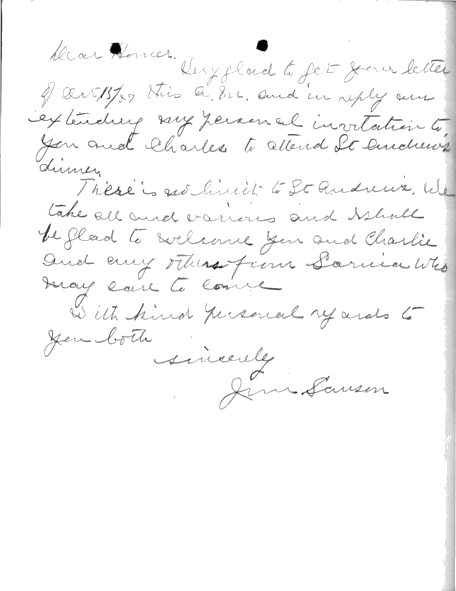 Dear Homer.
Very glad to get your letter
of Oct 15/27 this a.m. and in reply am
extending my personal invitation to
you and Charles to attend St Andrew's
dinner
There is no limit to St Andrew's. We
take all and various and I shall
be glad to welcome you and Charlie
and any others from Sarnia who
may care to come
With kind personal regards to
you both
sincerely
Jim